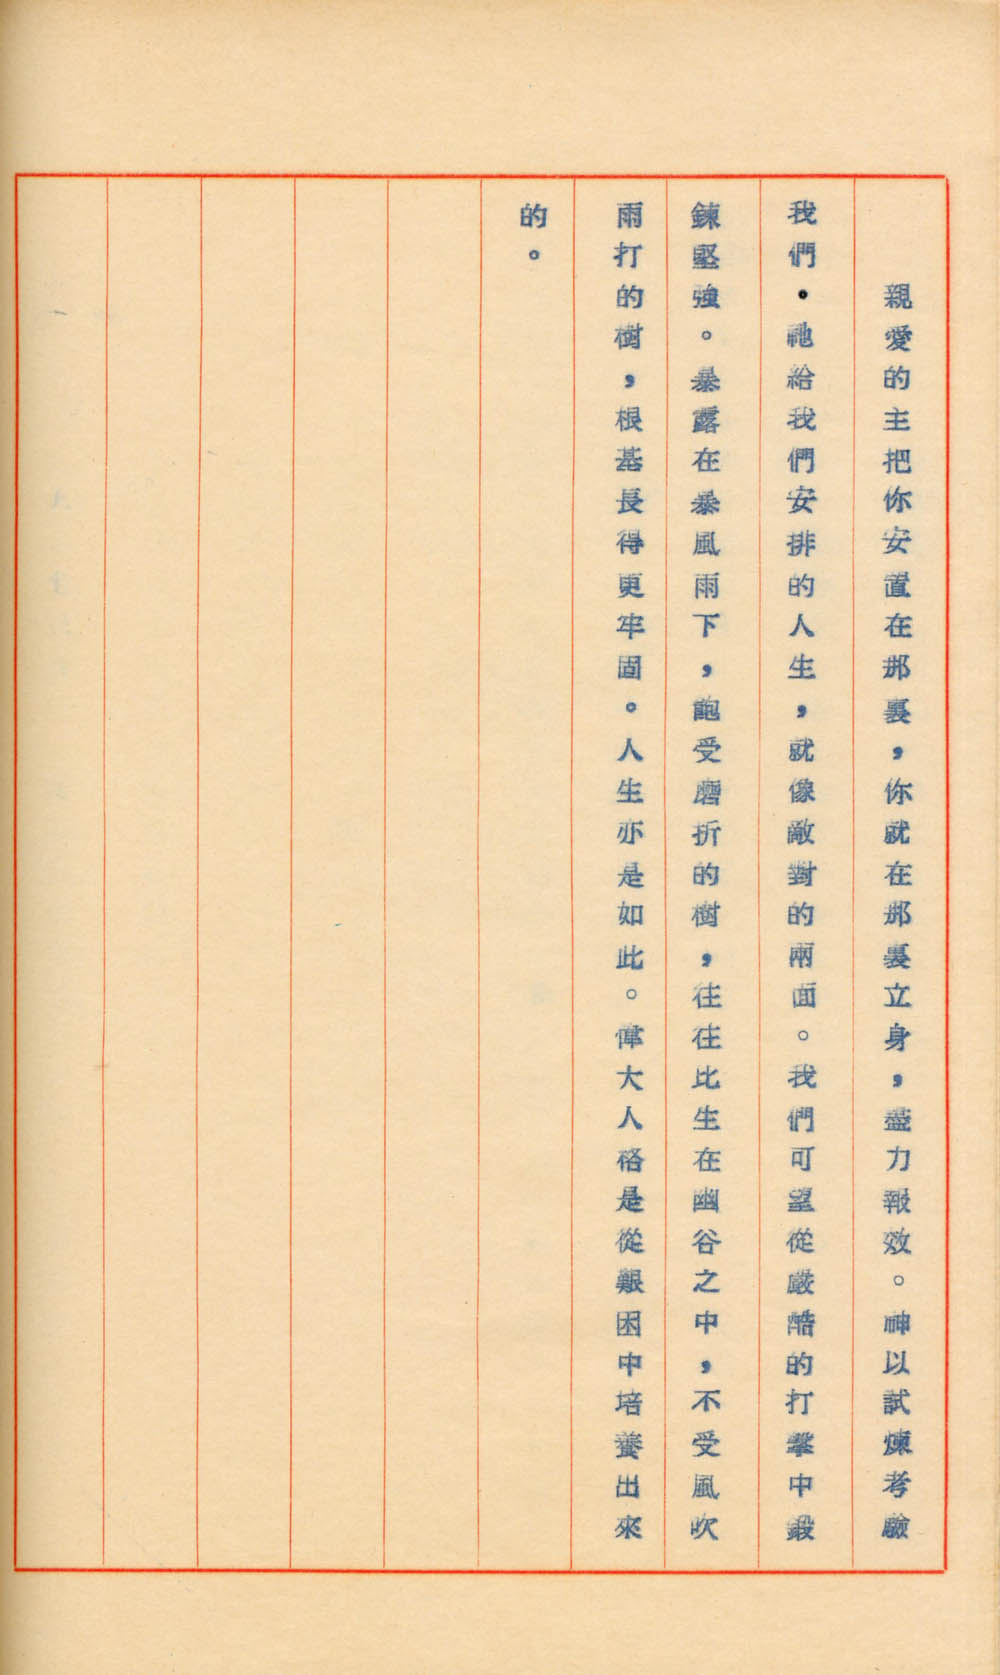 親愛的主把你安置在那裏，你就在那裏立身，盡力報效。神以試煉考驗
我們．祂給我們安排的人生，就像敵對的兩面。我們可望從嚴酷的打擊中鍛
鍊堅強。暴露在暴風雨下，飽受磨折的樹，往往比生在幽谷之中，不受風吹
雨打的樹，根基長得更牢固。人生亦是如此。偉大人格是從艱困中培養出來
的。